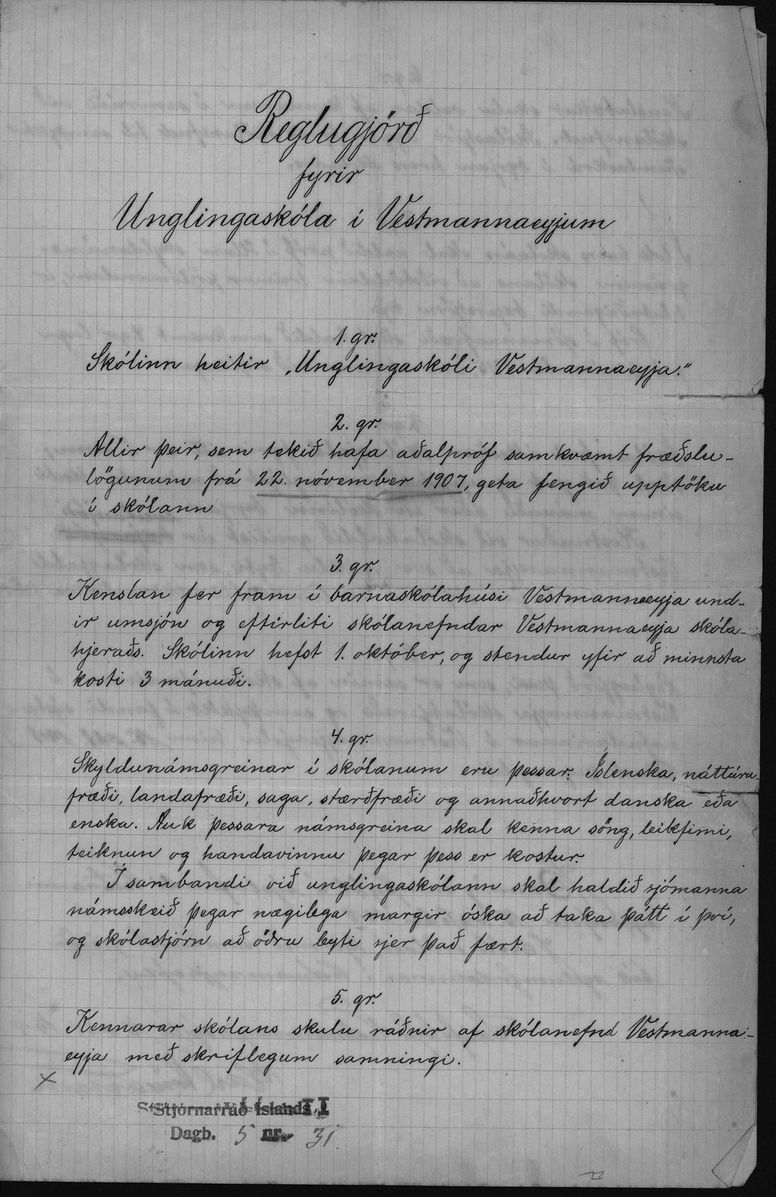 Reglugjörð
fyrir
Unglingaskóla í Vestmannaeyjum
1. gr.
Skólinn heitir „Unglingaskóli Vestmannaeyja."
2. gr.
Allir þeir, sem tekið hafa aðalpróf samkvæmt fræðslu-
lögunum frá 22. nóvember 1907, geta fengið upptöku
í skólann
3. gr.
Kenslan fer fram í barnaskólahúsi Vestmannaeyja und-
ir umsjón og eftirliti skólanefndar Vestmannaeyja skóla-
hjeraðs. Skólinn hefst 1. október, og stendur yfir að minnsta
kosti 3 mánuði.
4. gr.
Skyldunámsgreinar í skólanum eru þessar: Íslenska, náttúru
fræði, landafræði, saga, stærðfræði og annaðhvort danska eða
enska. Auk þessara námsgreina skal kenna söng, leikfimi,
teiknun og handavinnu þegar þess er kostur.
Í sambandi við unglingaskólann skal haldið sjómanna
námsskeið þegar nægilega margir óska að taka þátt í því,
og skólastjórn að öðru leyti sjer það fært.
5. gr.
Kennarar skólans skulu ráðnir af skólanefnd Vestmanna-
eyja með skriflegum samningi.
Stjórnarráð Íslands II
Dagb. 5 nr. 31